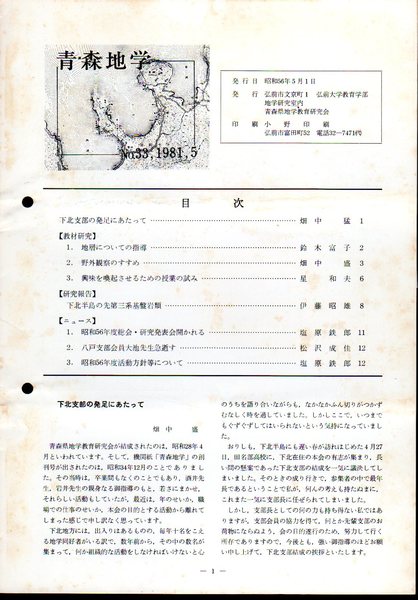 青森地学
No.33, 1981, 5
発行日 昭和56年5月1日
発行 弘前市文京町1 弘前大学教育学部
地学研究室内
青森県地学教育研究会
印刷 小野印刷
弘前市富田町52 電話32―7471代
目次
下北支部の発足にあたって 畑中 猛 1
【教材研究】
1. 地層についての指導 鈴木富子 2
2. 野外観察のすすめ 畑中 盛 3
3. 興味を喚起させるための授業の試み 星 和夫 6
【研究報告】
下北半島の先第三系基盤岩類 伊藤昭雄 8
【ニュース】
1. 昭和56年度総会・研究発表会開かれる 塩原鉄郎 11
2. 八戸支部会員大池先生急逝す 松沢成佳 12
3. 昭和56年度活動方針等について 塩原鉄郎 12
下北支部の発足にあたって
畑中 盛
青森県地学教育研究会が結成されたのは、昭和28年4
月といわれています。そして、機関紙『青森地学』の創
刊号が出されたのは、昭和34年12月のことでありまし
た。その当時は、卒業間もなくのことでもあり、酒井先
生、岩井先生の親身なる御指導のもと、若さにまかせ、
それらしい活動もしていたが、最近は、年のせいか、職
場での仕事のせいか、本会の目的とする活動から離れて
しまった感じで申し訳なく思っています。
下北地方には、出入りはあるものの、毎年十名をこえ
る地学同好者がいる訳で、数年前から、その中の数名が
集まって、何か組織的な活動をしなければいけないと心
のうちを語り合いながらも、なかなかふん切りがつかず
むなしく時を過していました。しかしここで、いつまで
もぐずぐずしてはいられないという気持になっていまし
た。
おりしも、下北半島にも遅い春が訪れはじめた4月27
日、田名部高校に、下北在住の本会の有志が集まり、長
い間の懸案であった下北支部の結成を一気に議決してし
まいました。そのときの成り行きで、参集者の中で最年
長であるということで私が、何んの考えも持たぬまに、
これまた一気に支部長に任ぜられてしまいました。
しかし、支部長としての何の力も持ち得ない私ではあ
りますが、支部会員の協力を得て、何とか先輩支部のお
荷物にならぬよう、会の目的遂行のため、努力して行く
所存でありますので、今後とも、強い御指導のほどお願
い申し上げて、下北支部結成の挨拶といたします。
― 1 ―